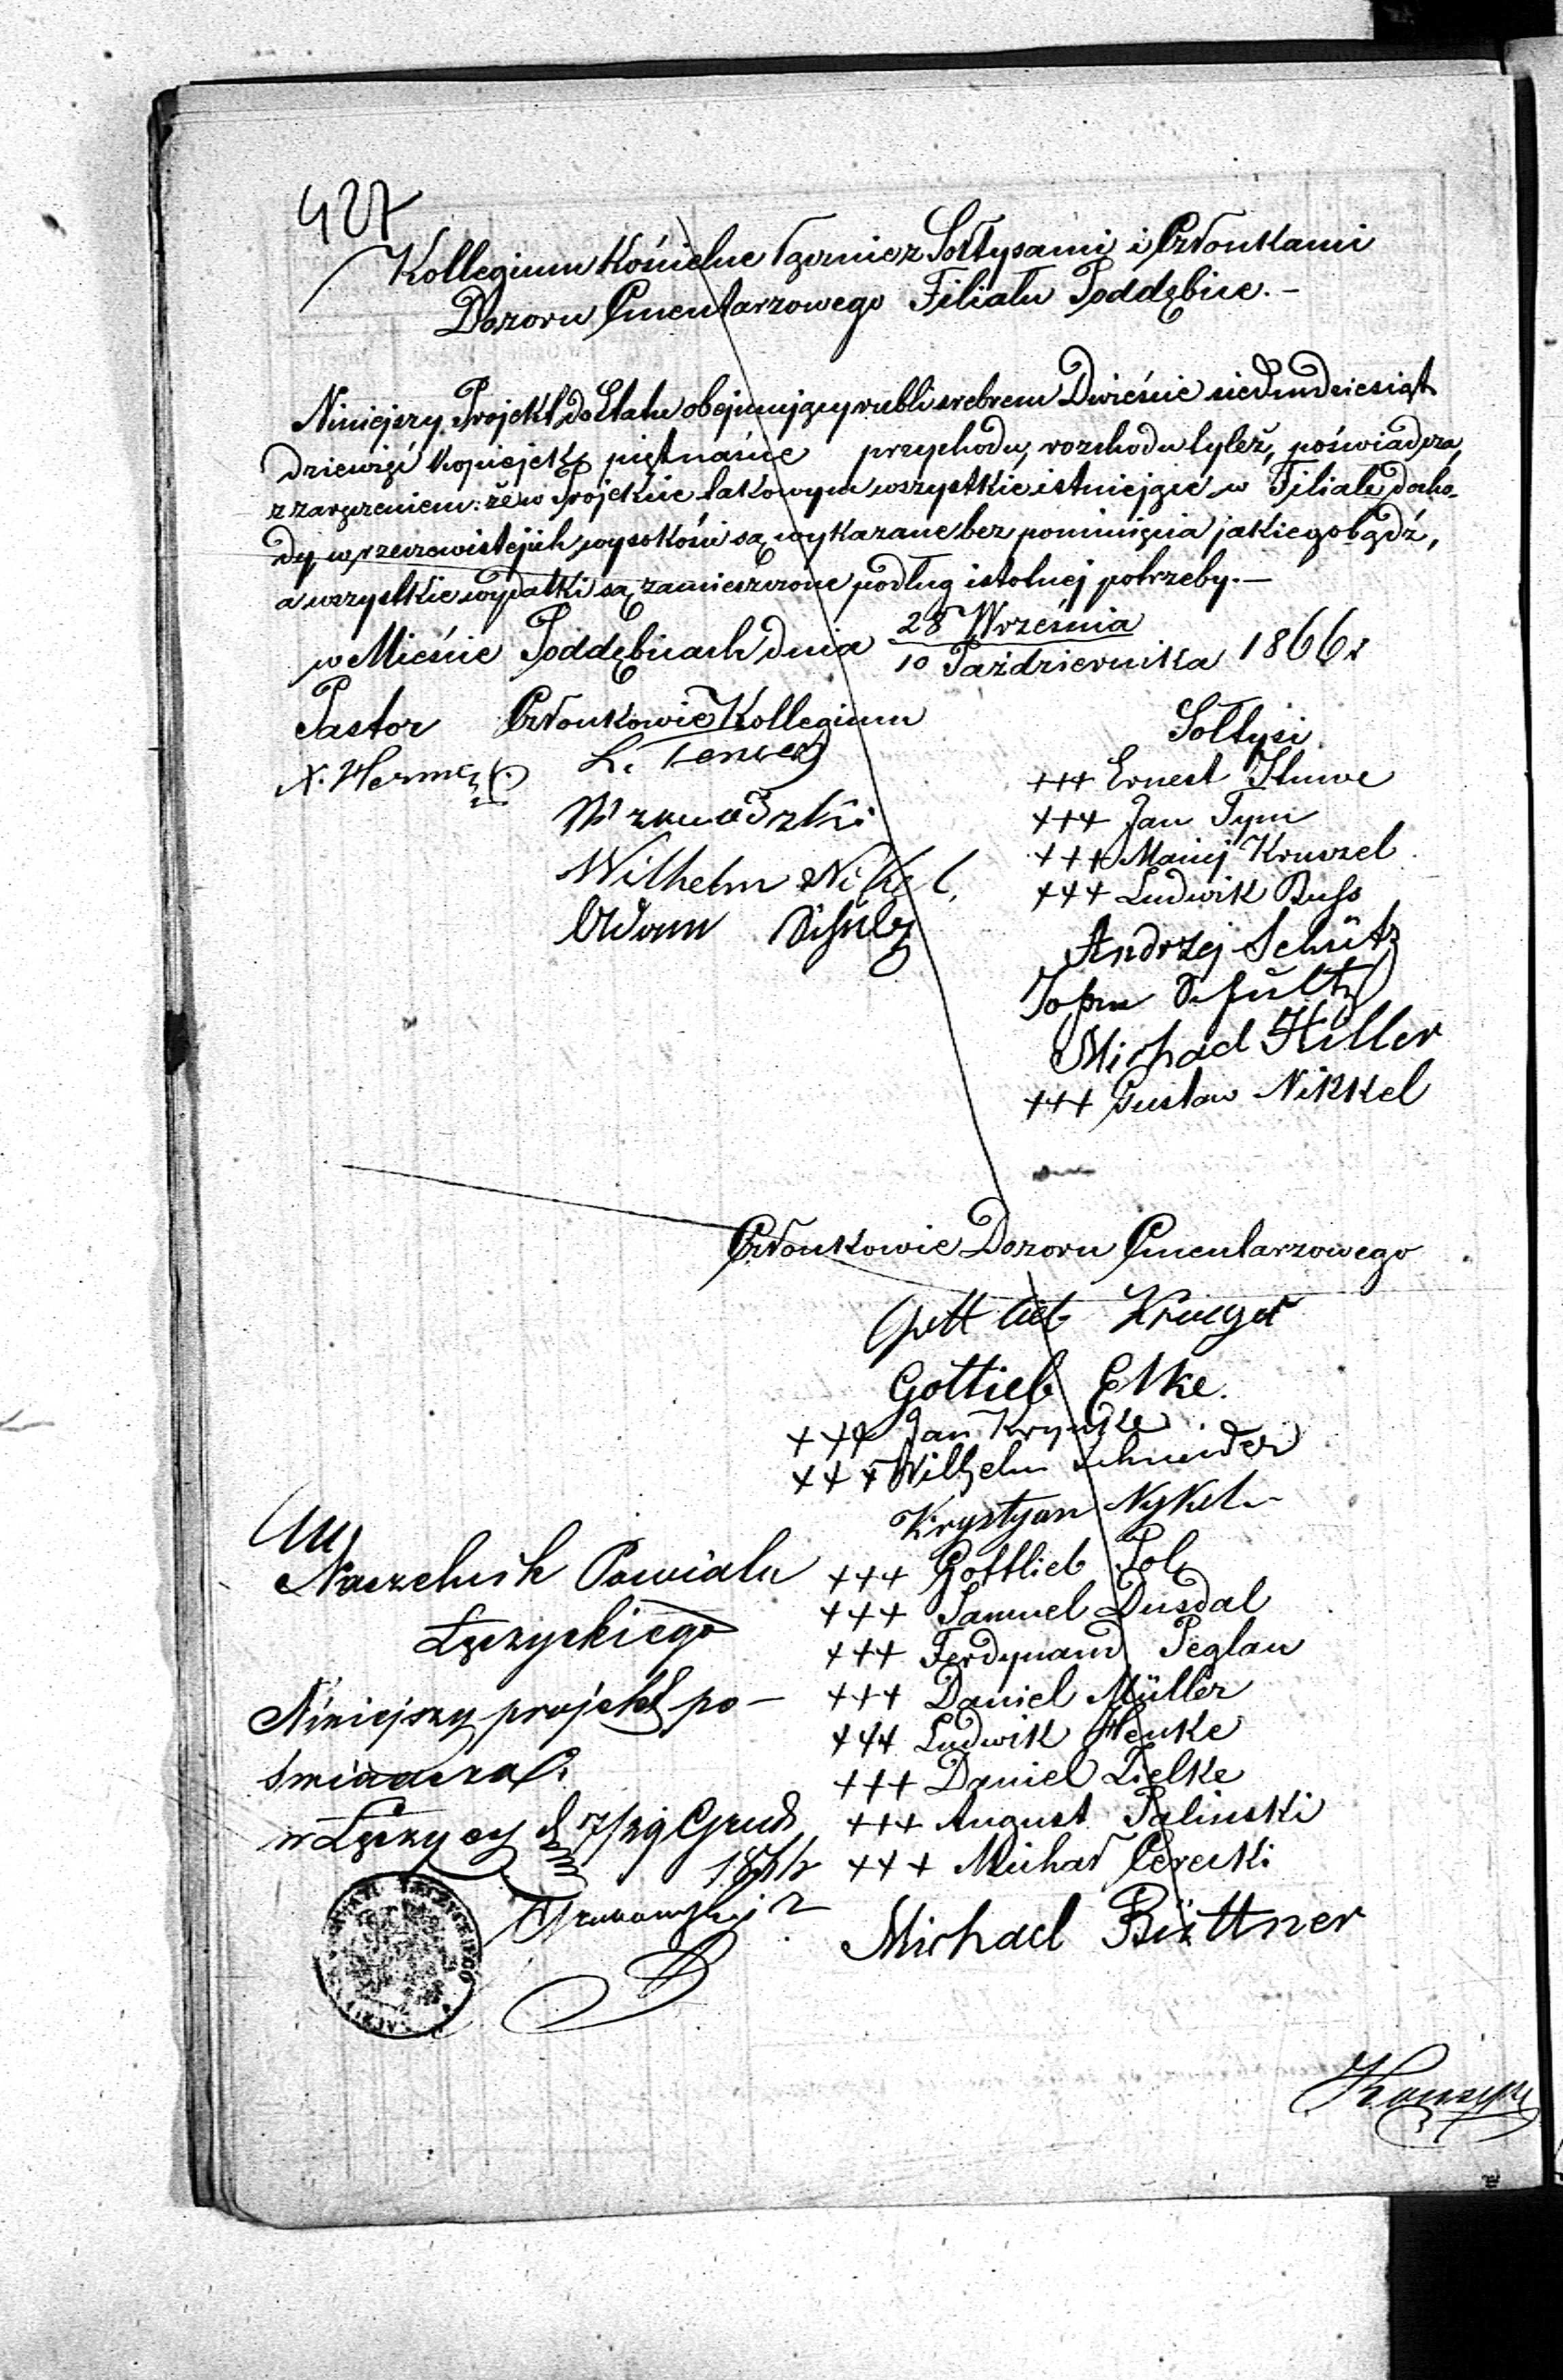 427
Kollegium Kościelne łącznie z Sołtysami i Członkami
Dozoru Cmentarzowego Filiału Poddębice.-
Niniejszy Projekt do Etatu obejmujący rubli srebrem Dwieście siedmdziesiąt
dziewięć kopiejek piętnaście przychodu, rozchodu tyleż, poświadcza,
z zaręczeniem: że w Projekcie takowym wszystkie istniejące w Filiale docho-
dy w rzeczowistej ich wysokości są wykazane bez pominięcia jakiegobądź,
a wszystkie wydatki są zamieszczone podług istotnej potrzeby.-
w Mieście Poddębicach dnia 28 Września
10 Października 1866 r
Pastor Członkowie Kollegium
Sołtysi
+++ Ernest Stuwe
+++ Jan Tym
+++ Maciej Kruszel
+++ Ludwik Buss
Wilhelm Nikel.
Adam Schulz
Andrzej Schütz
Johan Schultz
Michael Hiller
+++ Gustaw Nikkel
Członkowie Dozoru Cmentarzowego
Gottlieb Krueger
Gottlieb Elke.
+++ Jan Krynke
+++ Wilhelm Schneider
Krystyan Nykel
+++ Gottlieb
+++ Samuel Dusdal
+++ Ferdynand Peglau
+++ Daniel Müller
+++ Ludwik Henke
+++ Daniel Zielke
+++ August Palinski
+++ Michał Cerecki
Michael Büttner
Naczelnik Powiatu
Łęczyckiego
Niniejszy projekt po-
świadcza.
w Łęczycy d 17/29 Grud
1866